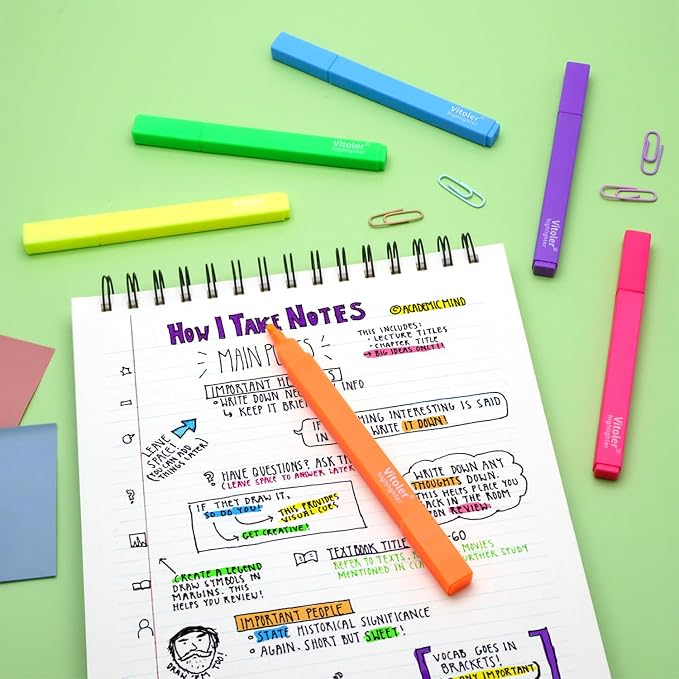 Vitoler®
highlighter
Vitoler®
highlighter
Vitoler®
highlighter
Vitoler®
highlighter
Vitoler®
highlighter
HOW I TAKE NOTES
© ACADEMICMIND
MAIN
THIS INCLUDES:
· LECTURE TITLES
· CHAPTER TITLE
→ BIG IDEAS ONLY!!
IMPORTANT
· WRITE DOWN INFO
↳ KEEP IT BRIEF
IF INTERESTING IS SAID
IN WRITE IT DOWN!
LEAVE
SPACE!
(YOU CAN ADD
THINGS LATER)
? HAVE QUESTIONS? ASK
(LEAVE SPACE TO ANSWER LATER
WRITE DOWN ANY
THOUGHTS DOWN.
THIS HELPS PLACE YOU
BACK IN THE ROOM
UPON REVIEW.
IF THEY DRAW IT,
SO DO YOU!
THIS PROVIDES
VISUAL CUES
GET CREATIVE!
TEXTBOOK TITLE -60
REFER TO TEXTS, MOVIES
MENTIONED IN FURTHER STUDY
CREATE A LEGEND
DRAW SYMBOLS IN
MARGINS. THIS
HELPS YOU REVIEW!
IMPORTANT PEOPLE
· STATE HISTORICAL SIGNIFICANCE
· AGAIN, SHORT BUT SWEET!
DRAW 'EM TOO!
VOCAB GOES IN
BRACKETS!
ANY IMPORTANT